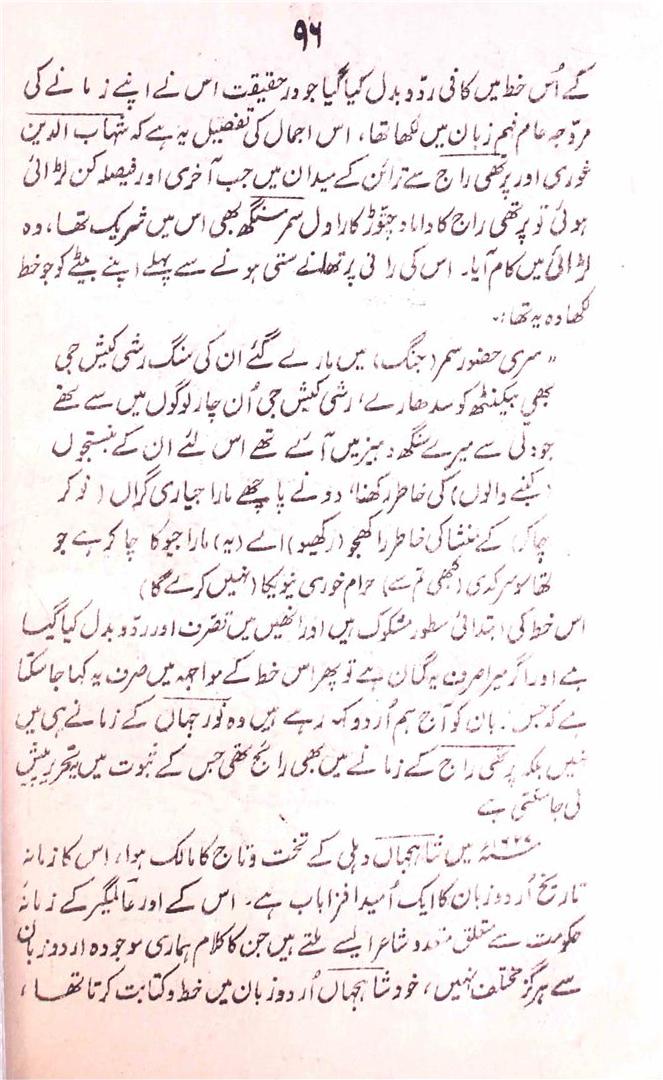 ۹۶
کے اُس خط میں کافی ردّ و بدل کیا گیا جو در حقیقت اس نے اپنے زمانے کی
مروّجہ عام فہم زبان میں لکھا تھا، اس اجمال کی تفصیل یہ ہے کہ شہاب الدین
غوری اور پرتھی راج سے ترائن کے میدان میں جب آخری اور فیصلہ کن لڑائی
ہوئی تو پرتھی راج کا داماد چتوڑ کا راول سمر سنگھ بھی اس میں شریک تھا، وہ
لڑائی میں کام آیا۔ اس کی رانی پرتھا نے ستی ہونے سے پہلے اپنے بیٹے کو جو خط
لکھا وہ یہ تھا:۔
"سری حضور سمر (جنگ) میں مارے گئے ان کی سنگ رشی کیش جی
بھی بیکنٹھ کو سدھارے، رشی کیش جی اُن چار لوگوں میں سے تھے
جو دلی سے میرے سنگھ دہیز میں آئے تھے اس لئے ان کے
کی خاطر رکھنا، دونے پاچھے مارا جیاری گراں (نوکر
چاکر) کے منشا کی خاطر راکھجو (رکھیو) اے (یہ) مارا جیو کا چاکر ہے جو
تھا سو ہرکدی (کبھی تم سے) حرام خوری نیو (نہیں کرے گا)
اس خط کی ابتدائی سطور مشکوک ہیں اور انھیں میں تصرف اور ردّ و بدل کیا گیا
ہے اور اگر میرا صرف یہ گمان ہے تو پھر اس خط کے مواجہہ میں صرف یہ کہا جا سکتا
ہے کہ جس زبان کو آج ہم اُردو کہہ رہے ہیں وہ نور جہاں کے زمانے ہی میں
نہیں بلکہ پرتھی راج کے زمانے میں بھی رائج تھی جس کے ثبوت میں یہ تحریر پیش
کی جا سکتی ہے
۱۶۲۷ء میں شاہجہاں دہلی کے تخت و تاج کا مالک ہوا، اس کا زمانہ
تاریخ اُردو زبان کا ایک اُمید افزا باب ہے۔ اس کے اور عالمگیر کے زمانۂ
حکومت سے متعلق متعدد شاعر ایسے ملتے ہیں جن کا کلام ہماری موجودہ اردو زبان
سے ہرگز مختلف نہیں، خود شاہجہاں اُردو زبان میں خط و کتابت کرتا تھا،